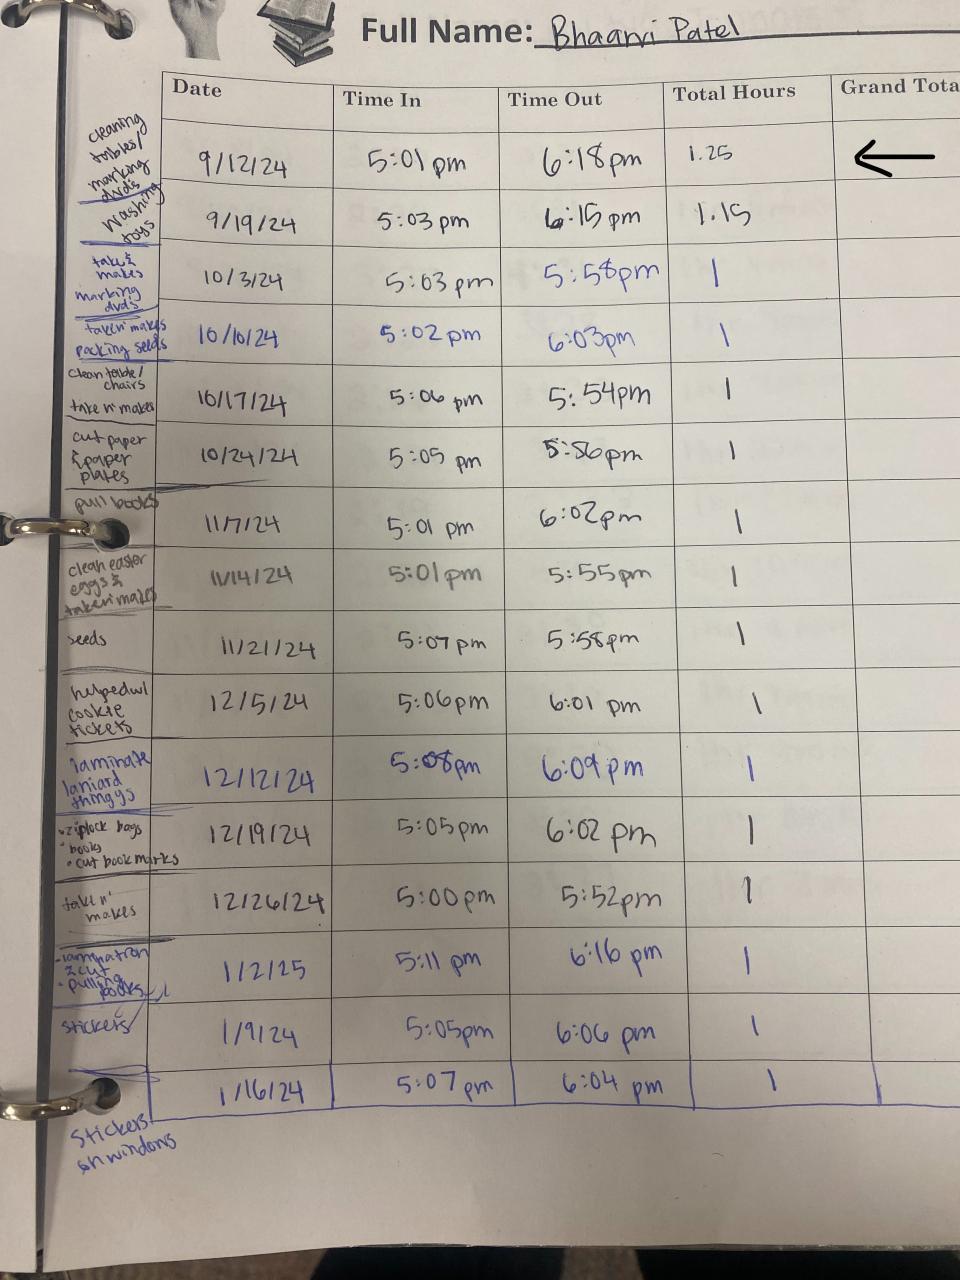 Full Name: Bhaanvi Patel
Date Time In Time Out Total Hours Grand Tota
cleaning
tables/
marking
dvd's
9/12/24 5:01 pm 6:18pm 1.25
washing
toys
9/19/24 5:03 pm 6:15 pm 1.15
take &
makes
marking
dvd's
10/3/24 5:03 pm 5:58pm 1
take n' makes
packing seeds
10/10/24 5:02 pm 6:03pm 1
clean table/
chairs
take n' makes
10/17/24 5:06 pm 5:54pm 1
cut paper
& paper
plates
10/24/24 5:05 pm 5:56pm 1
pull books
11/7/24 5:01 pm 6:02pm 1
clean easter
eggs &
take n' makes
11/14/24 5:01 pm 5:55pm 1
seeds
11/21/24 5:07 pm 5:58pm 1
helped w/
cookie
tickets
12/5/24 5:06pm 6:01 pm 1
laminate
laniard
thingys
12/12/24 5:08pm 6:09 pm 1
• ziplock bags
• books
• cut bookmarks
12/19/24 5:05pm 6:02 pm 1
take n'
makes
12/26/24 5:00pm 5:52pm 1
& cut
• pulling
books
1/2/25 5:11 pm 6:16 pm 1
stickers
1/9/24 5:05pm 6:06 pm 1
1/16/24 5:07 pm 6:04 pm 1
stickers
on windows